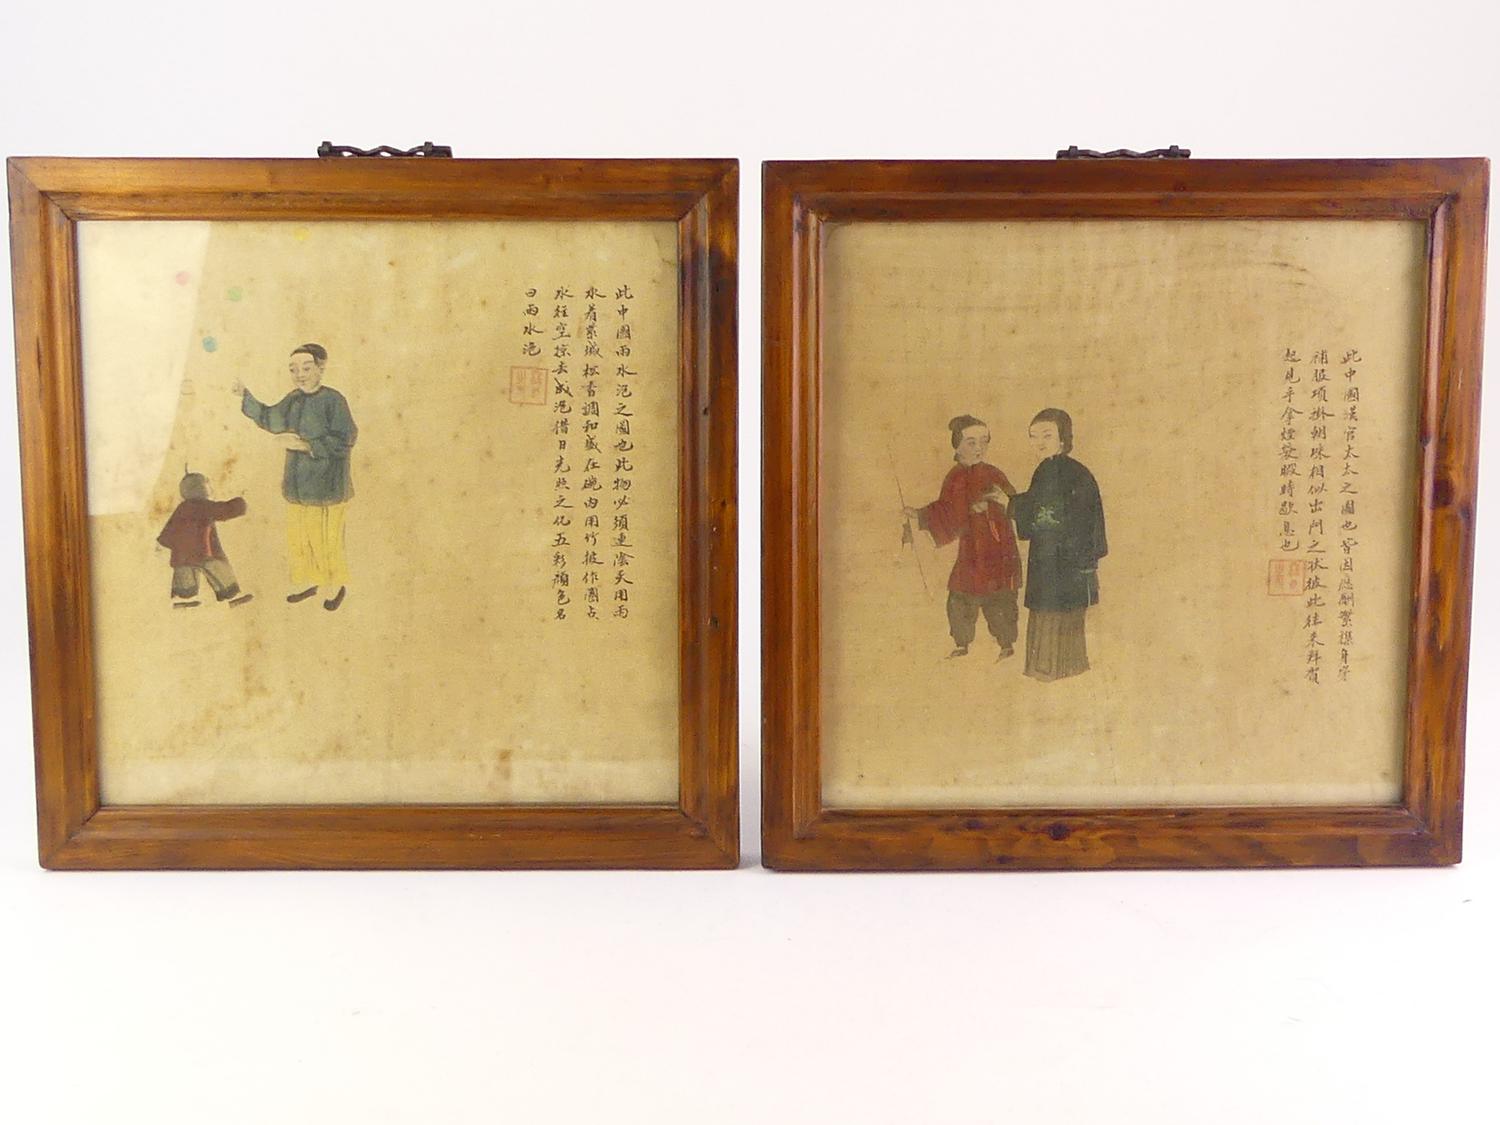 此中國雨水泡之圖也此物必須連陰天用雨
水着紫城松香調和盛在碗内用竹披作圈占
水往空掠去成泡借日光照之化五彩顔色名
曰雨水泡
此中國漢官太太之圖也皆因應酬繁禖身穿
補服項掛朝珠相似出門之狀彼此往来拜賀
起見手拿煙袋暇時歇息也